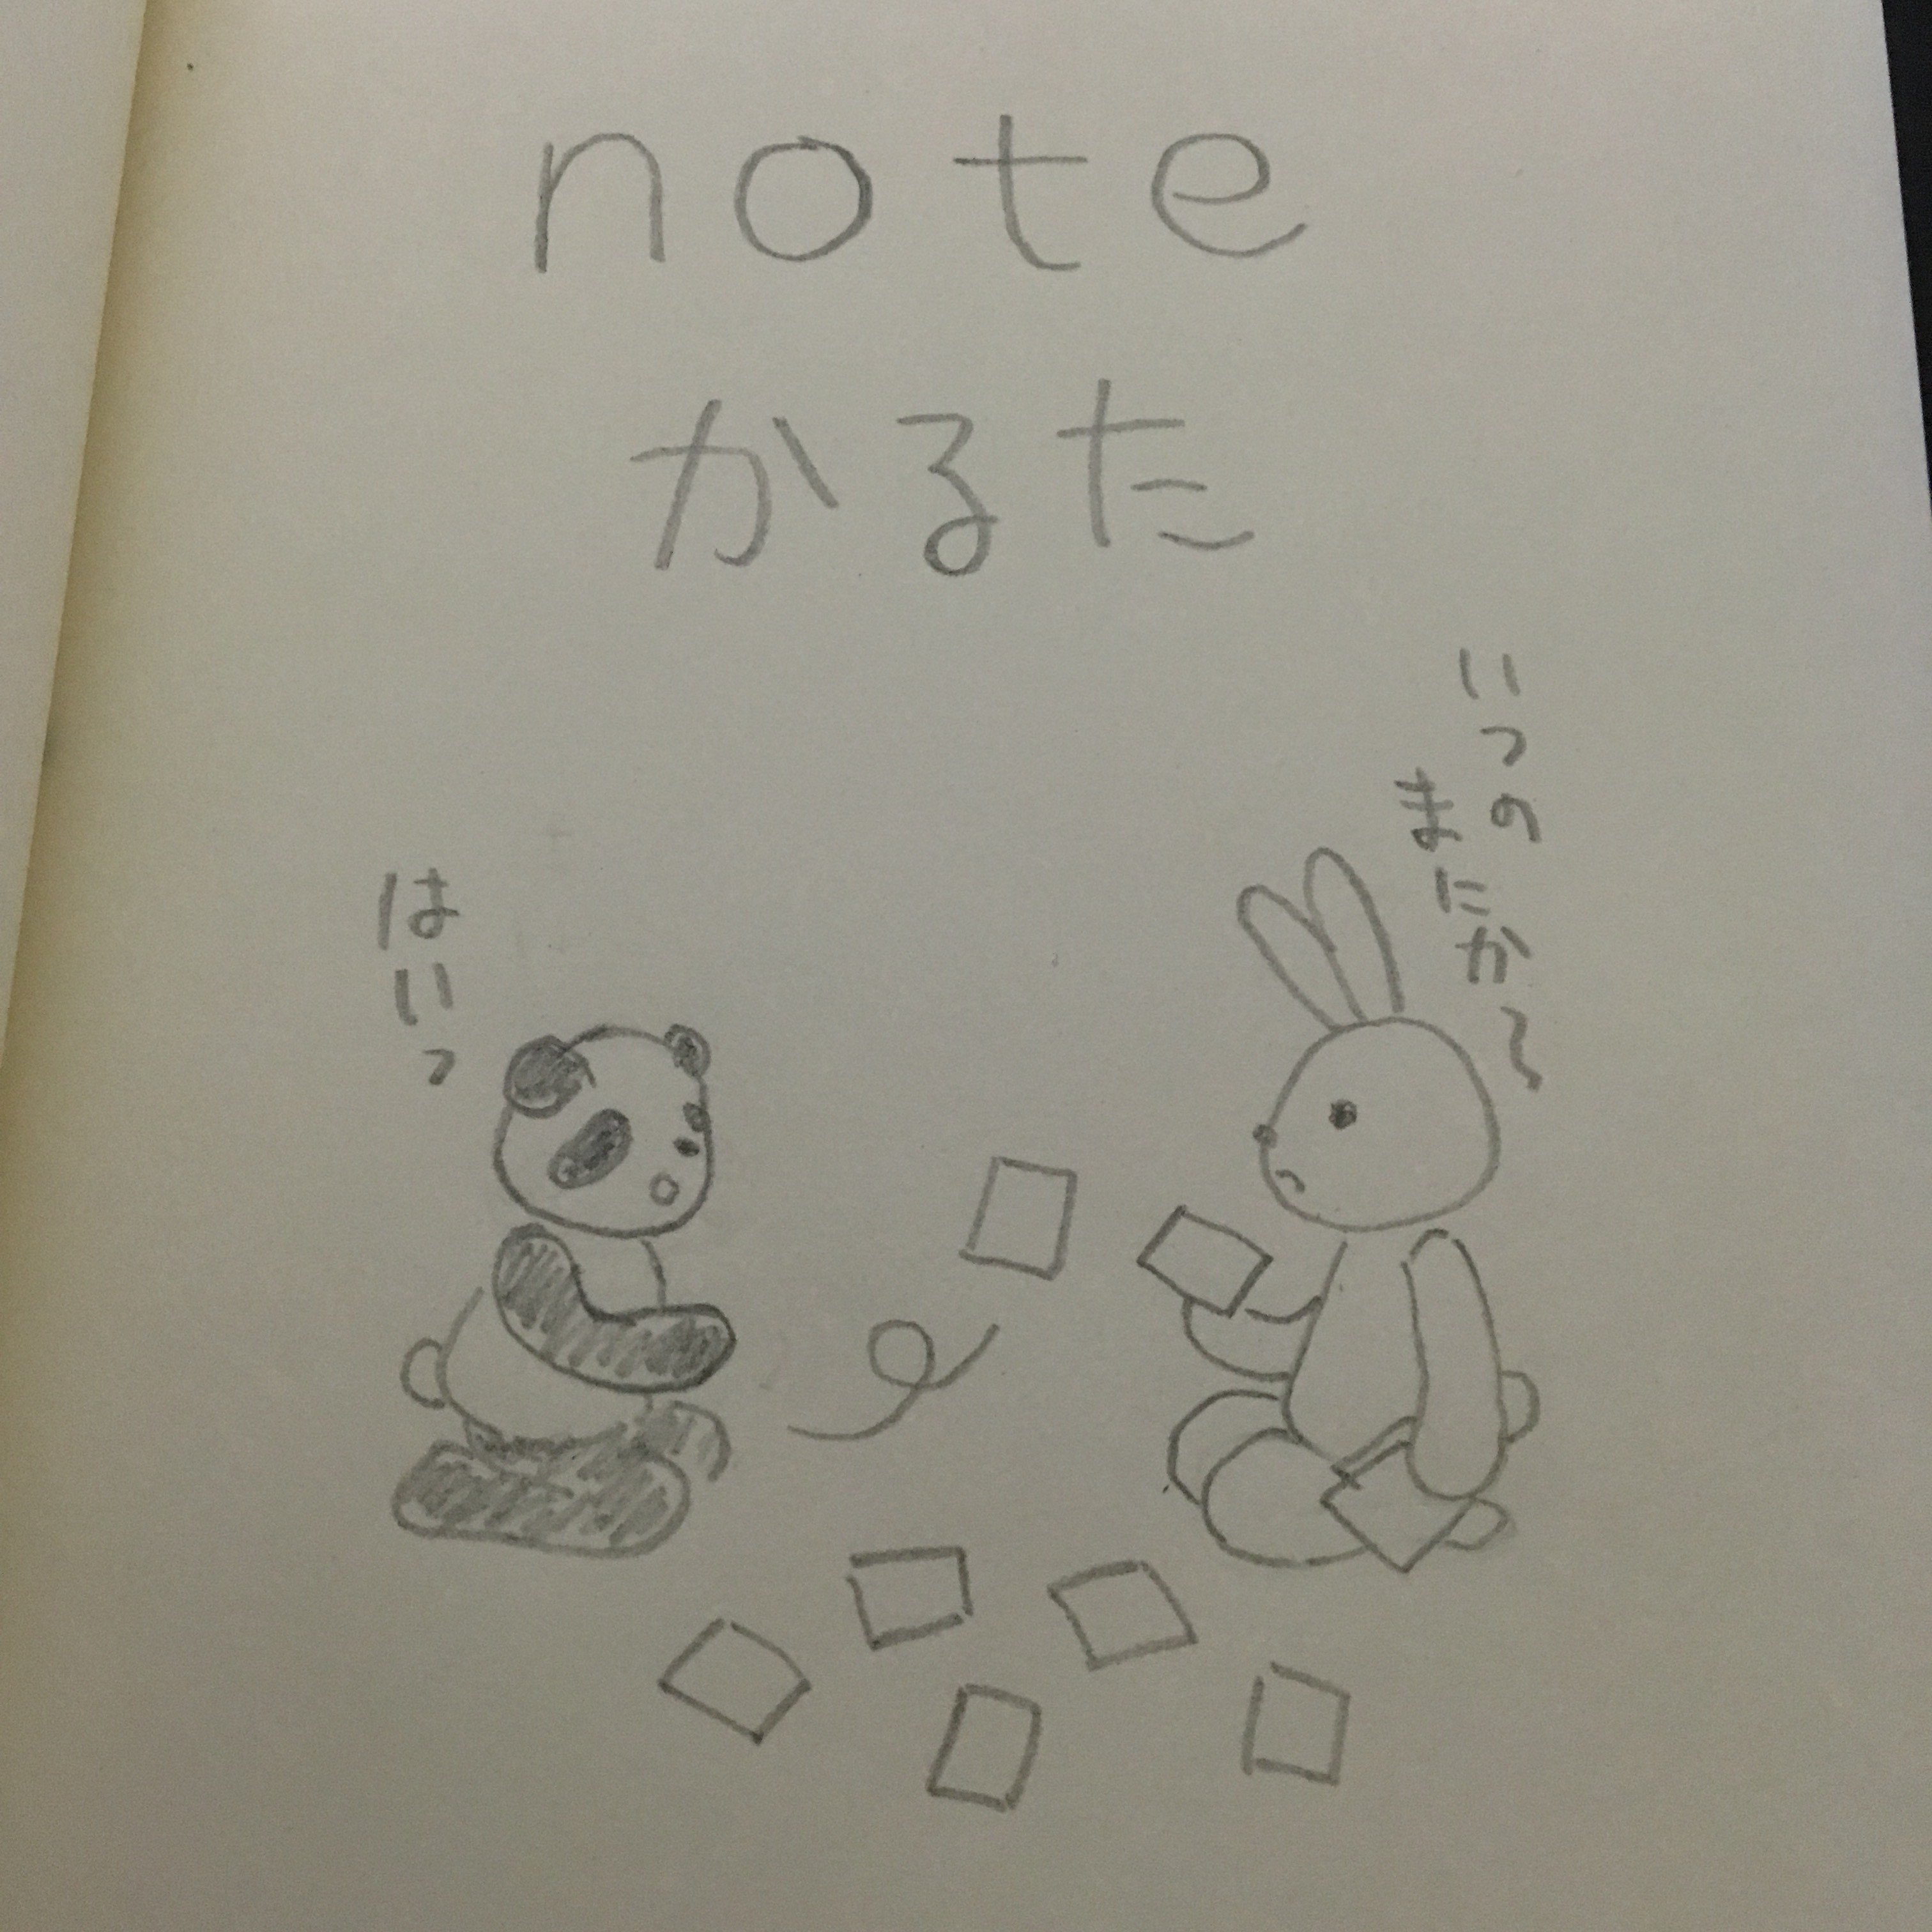 note
かるた
いつの
まにか〜
はいっ